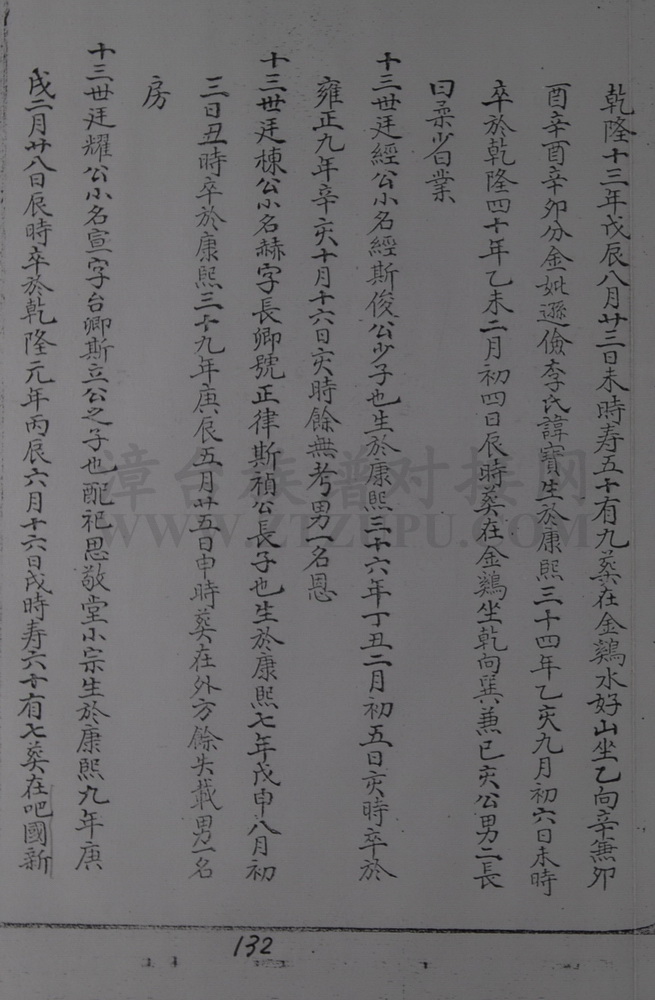 乾隆十三年戊辰八月廿三日未時寿五十有九葬在金鷄水好山坐乙向辛兼卯
酉辛酉辛卯分金妣遜儉李氏諱寶生於康熙三十四年乙亥九月初六日未時
卒於乾隆四十年乙未二月初四日辰時葬在金鷄坐乾向巽兼巳亥公男二長
曰柔少曰業
十三世廷經公小名經斯俊公少子也生於康熙三十六年丁丑二月初五日亥時卒於
雍正九年辛亥十月十六日亥時餘無考男一名恩
十三世廷棟公小名赫字長卿號正律斯禎公長子也生於康熙七年戊申八月初
三日丑時卒於康熙三十九年庚辰五月廿五日申時葬在外方餘失載男一名
房
十三世廷耀公小名宣字台卿斯立公之子也配祀思敬堂小宗生於康熙九年庚
戌二月廿八日辰時卒於乾隆元年丙辰六月十六日戌時寿六十有七葬在吧國新
132
漳台族谱对接网
WWW.ZTZUPU.COM